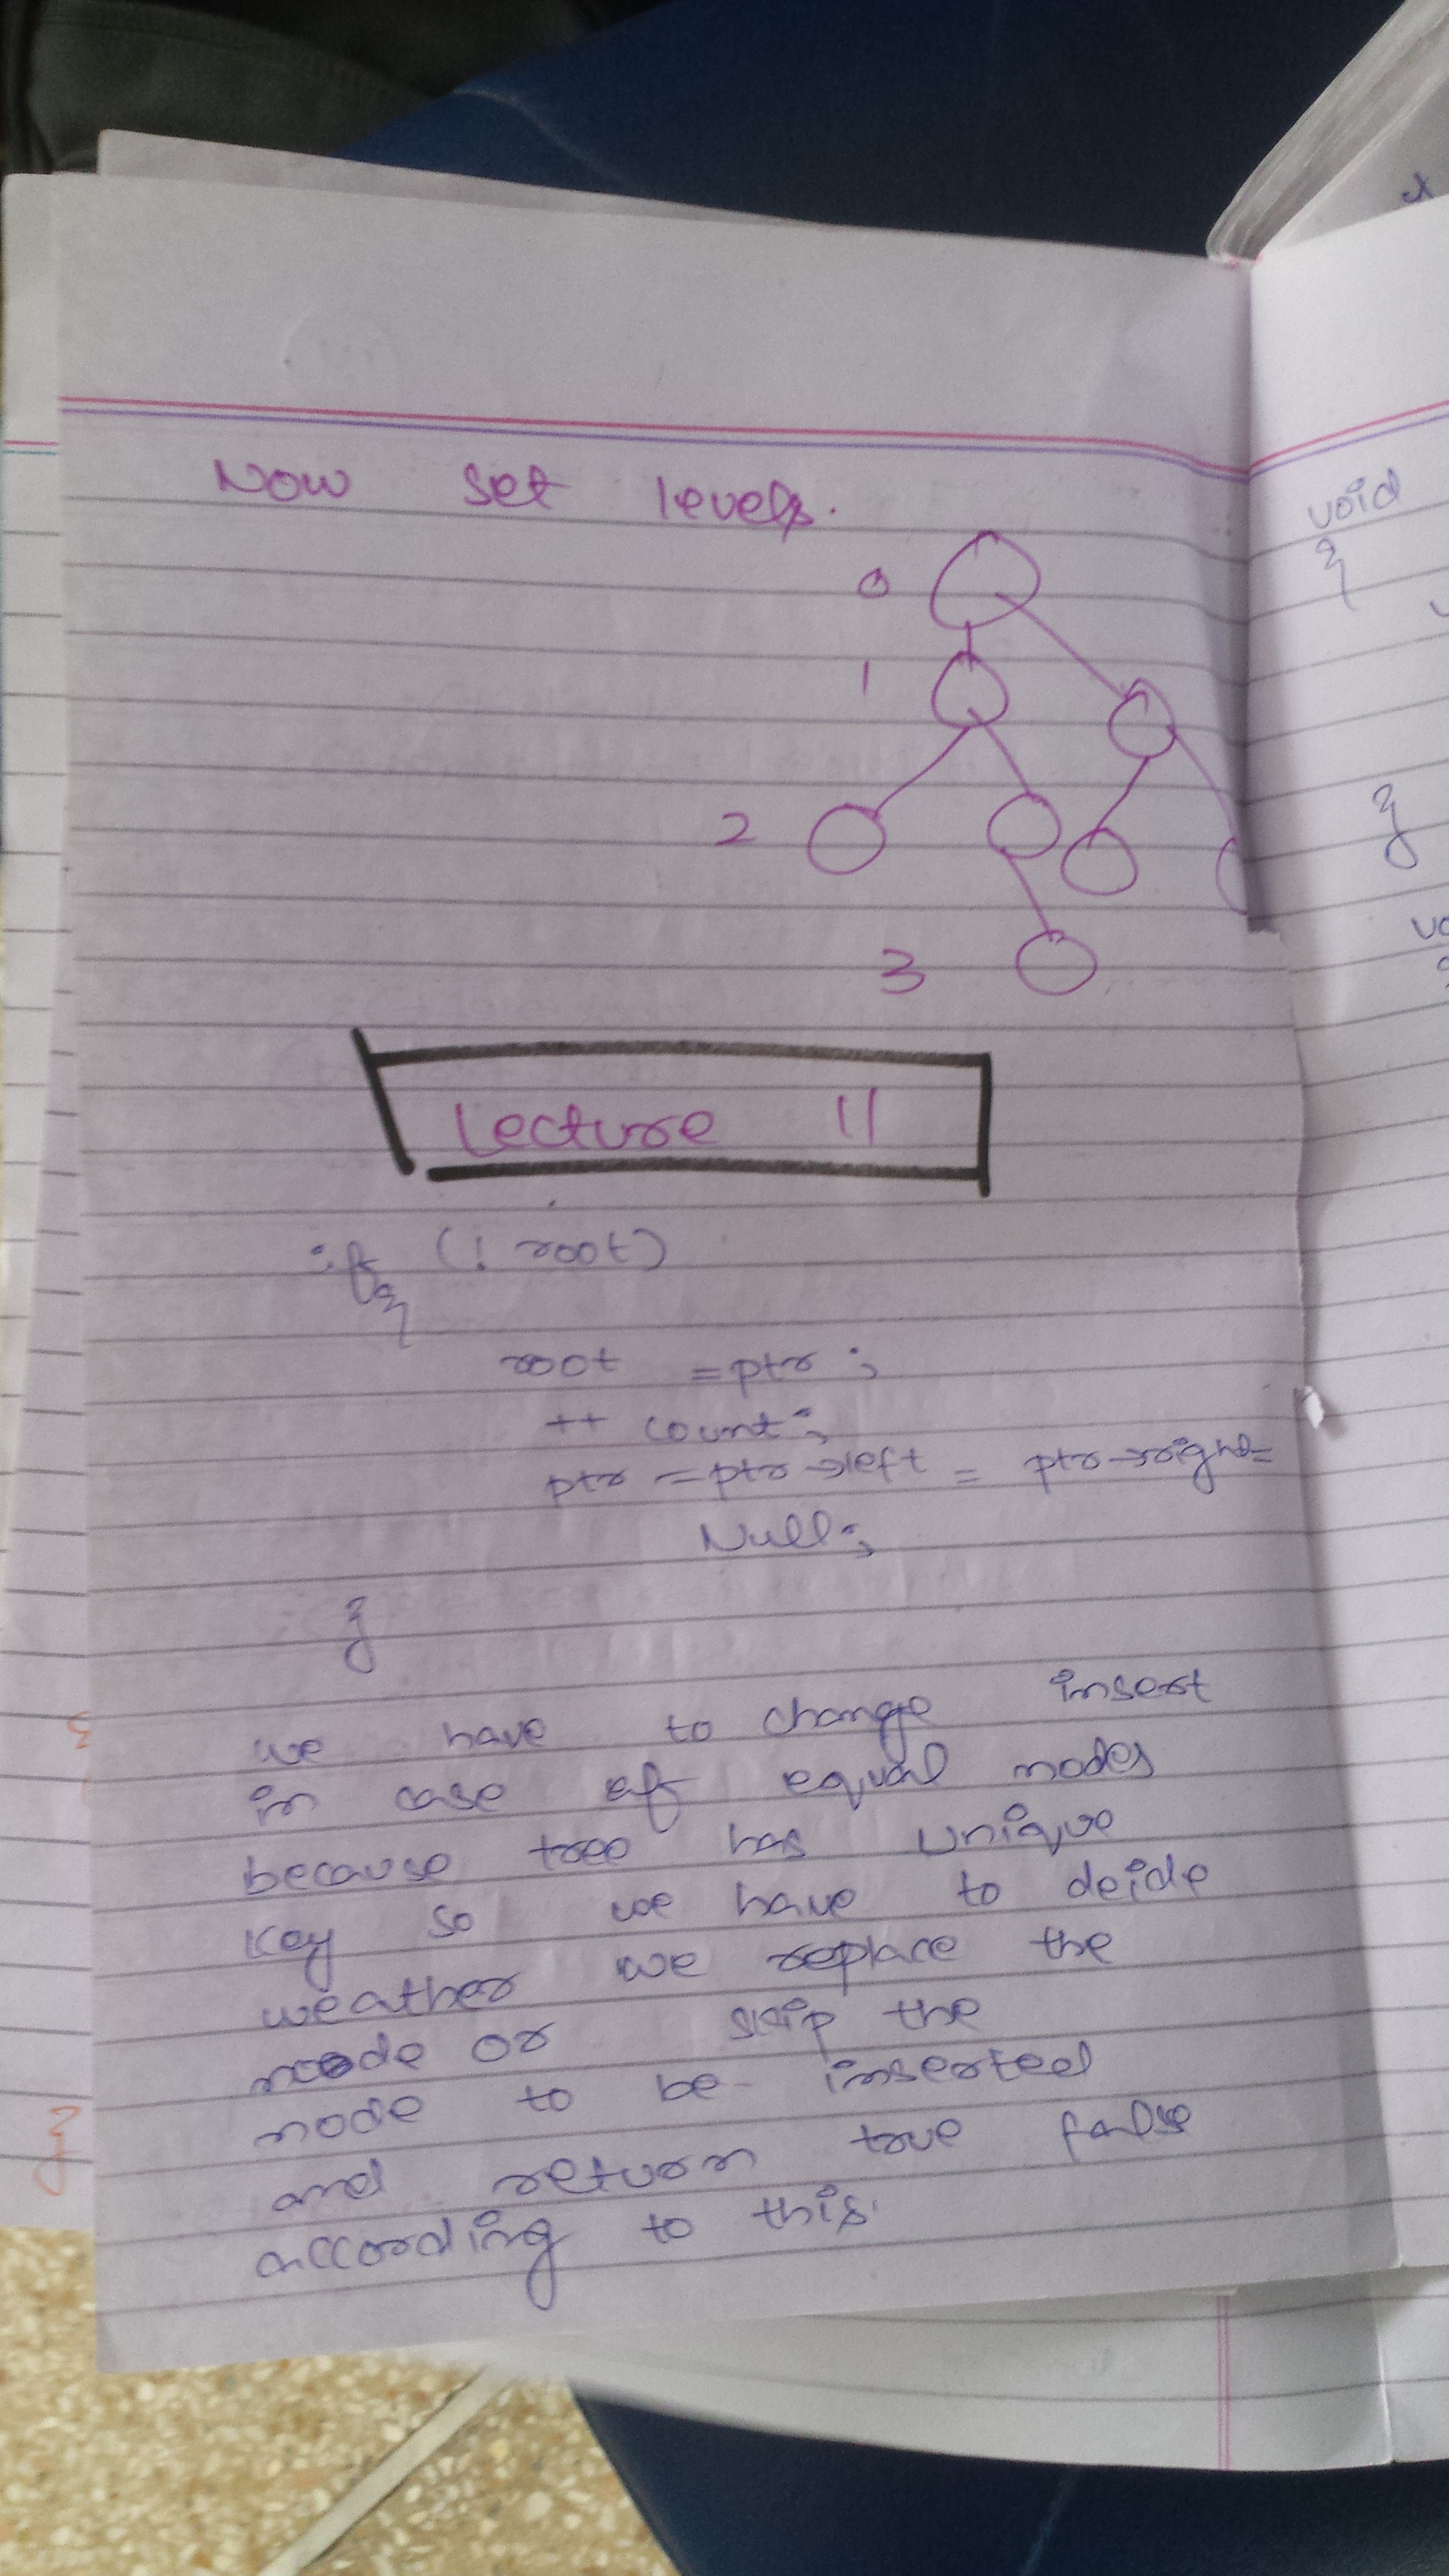 Now set levels.
0
1
2
3
Lecture 11
if (! root)
{
root = ptr ;
++ count ;
ptr = ptr->left = ptr->right =
Null ;
}
we have to change insert
in case of equal nodes
because tree has unique
key so we have to deide
weather we replace the
node or skip the
node to be inserted
and return true false
according to this.
void
{
}